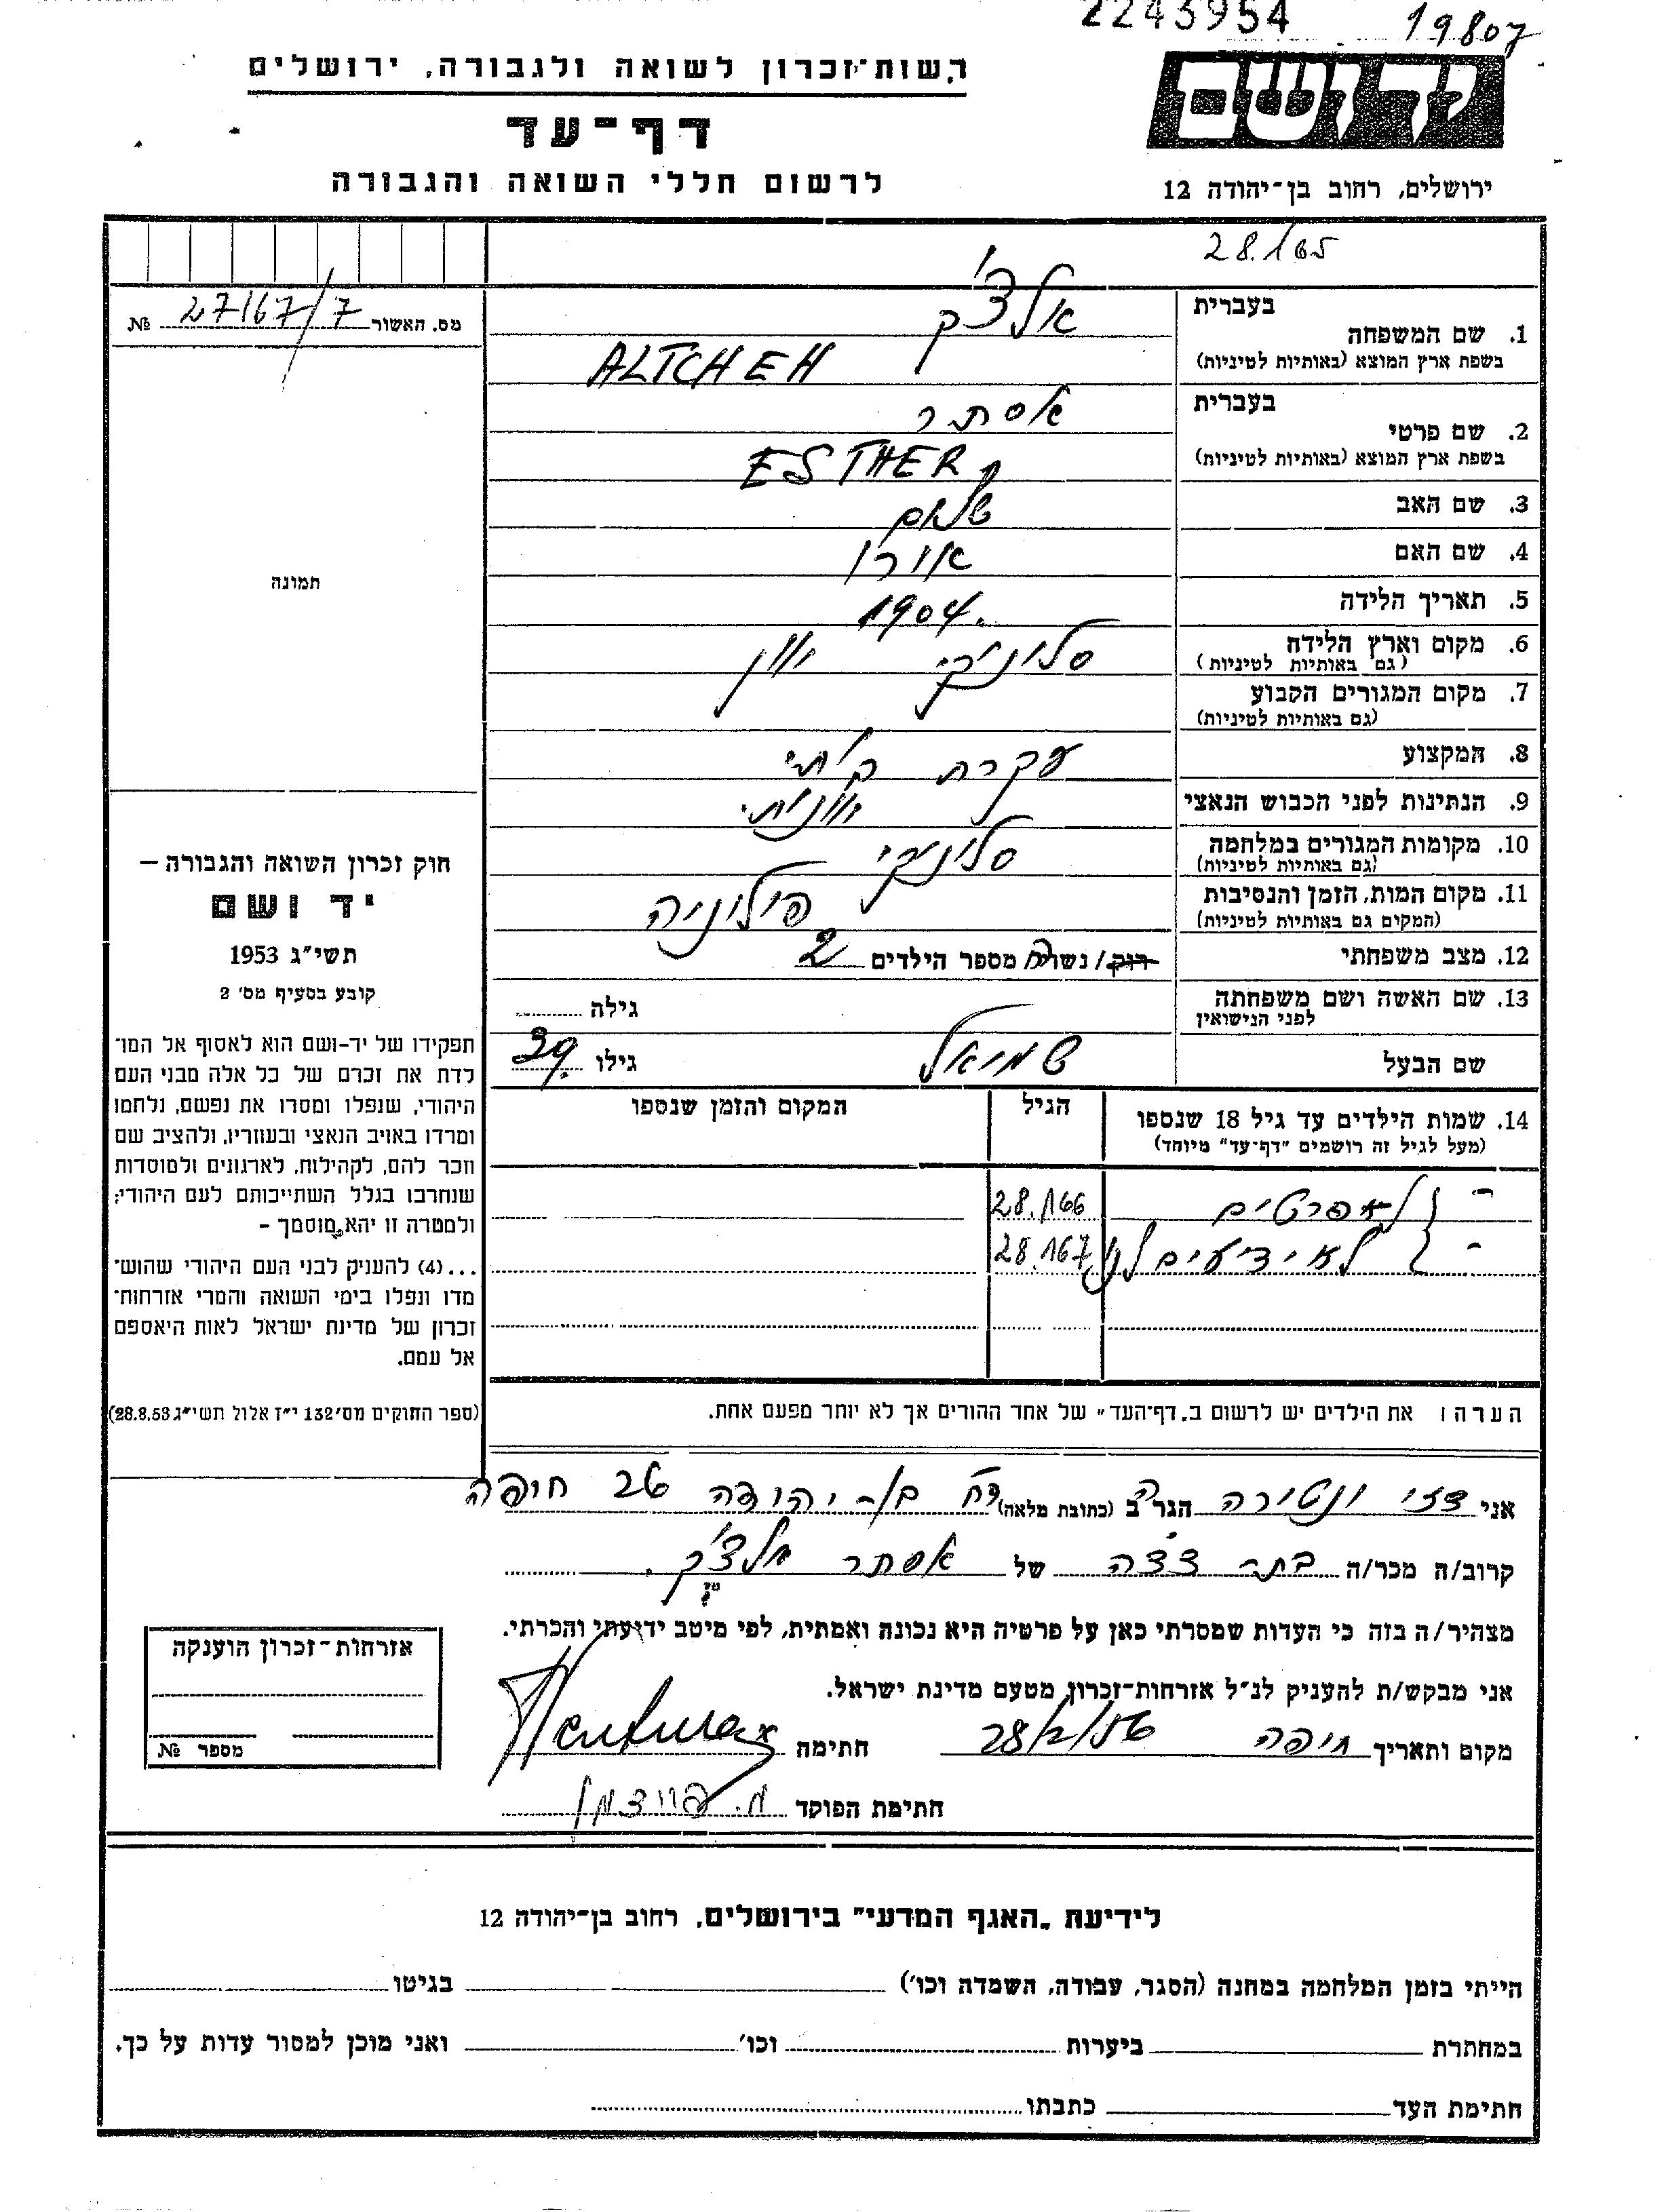 2243954 19807
רשות־זכרון לשואה ולגבורה, ירושלים
יד ושם
דף־עד
לרשום חללי השואה והגבורה
ירושלים, רחוב בן־יהודה 12
28.165
מס. האשור 27167/7 №
תמונה
1. שם המשפחה
בעברית
אלצ'ק
בשפת ארץ המוצא (באותיות לטיניות)
ALTCHEH
2. שם פרטי
בעברית
אסתר
בשפת ארץ המוצא (באותיות לטיניות)
ESTHER
3. שם האב
שלום
4. שם האם
אורו
5. תאריך הלידה
1904.
6. מקום וארץ הלידה
(גם באותיות לטיניות)
סלוניקי יוון
7. מקום המגורים הקבוע
(גם באותיות לטיניות)
8. המקצוע
עקרת בית
9. הנתינות לפני הכבוש הנאצי
יוונית
10. מקומות המגורים במלחמה
(גם באותיות לטיניות)
סלוניקי
11. מקום המות, הזמן והנסיבות
(המקום גם באותיות לטיניות)
פולוניה
12. מצב משפחתי
רוק / נשוי/ה מספר הילדים 2
13. שם האשה ושם משפחתה
לפני הנישואין
גילה
שם הבעל
שמואל
גילו 39.
14. שמות הילדים עד גיל 18 שנספו
(מעל לגיל זה רושמים "דף־עד" מיוחד)
הגיל
המקום והזמן שנספו
- הפרטים 28.166
- לא ידועים לי 28.167
הערה: את הילדים יש לרשום ב„דף־העד" של אחד ההורים אך לא יותר מפעם אחת.
חוק זכרון השואה והגבורה –
יד ושם
תשי"ג 1953
קובע בסעיף מס' 2
תפקידו של יד-ושם הוא לאסוף אל המו־
לדת את זכרם של כל אלה מבני העם
היהודי, שנפלו ומסרו את נפשם, נלחמו
ומרדו באויב הנאצי ובעוזריו, ולהציב שם
וזכר להם, לקהילות, לארגונים ולמוסדות
שנחרבו בגלל השתייכותם לעם היהודי;
ולמטרה זו יהא מוסמך –
...(4) להעניק לבני העם היהודי שהוש־
מדו ונפלו בימי השואה והמרי אזרחות־
זכרון של מדינת ישראל לאות היאספם
אל עמם.
(ספר החוקים מס' 132 י"ז אלול תשי"ג 28.8.53)
אני ונטורה הגר ב (כתובת מלאה) רח' בן-יהודה 26 חיפה
קרוב/ה מכר/ה של אסתר אלצ'ק.
מצהיר/ה בזה כי העדות שמסרתי כאן על פרטיה היא נכונה ואמתית, לפי מיטב ידיעתי והכרתי.
אני מבקש/ת להעניק לנ"ל אזרחות־זכרון מטעם מדינת ישראל.
מקום ותאריך חיפה 28/2/56 חתימה Ventura
חתימת הפוקד
אזרחות־זכרון הוענקה
מספר №
לידיעת „האגף המדעי" בירושלים, רחוב בן־יהודה 12
הייתי בזמן המלחמה במחנה (הסגר, עבודה, השמדה וכו') בגיטו
במחתרת ביערות וכו' ואני מוכן למסור עדות על כך.
חתימת העד כתבתו